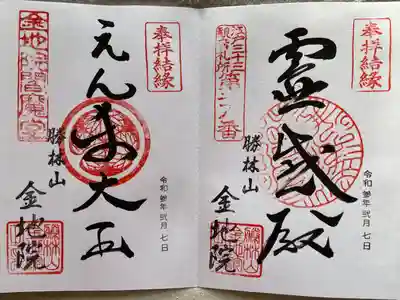 奉拝結縁
江戸三十三
観音札所
番
霊感殿
勝林山
金地院
令和参年弐月七日
奉拝結縁
金地院閻魔堂
えんま大王
勝林山
金地院
令和参年弐月七日